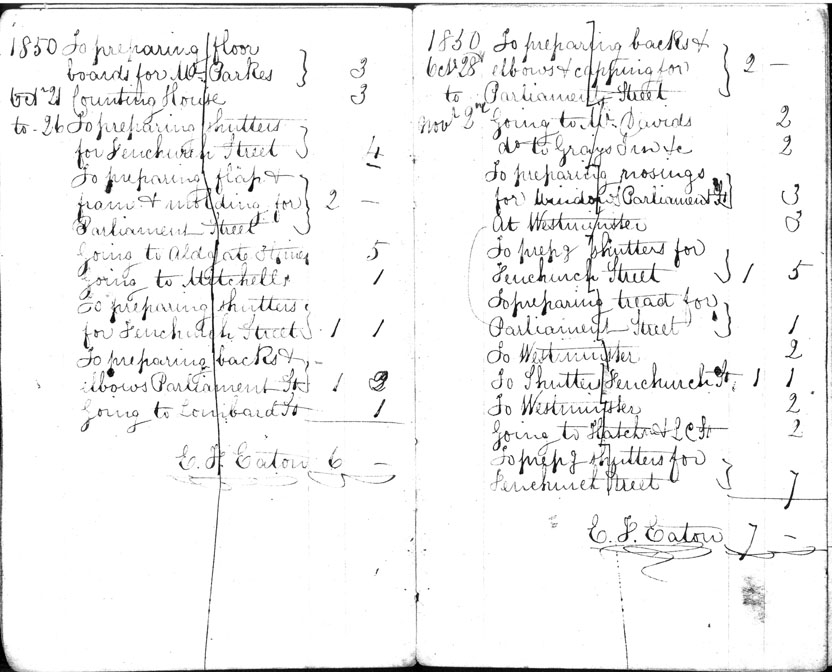 1850 To preparing floor
boards for Mr. Parkes } 3
Octr 21 Counting House 3
to 26 To preparing shutters
for Fenchurch Street } 4
To preparing flap &
fram & molding for } 2 -
Parliament Street
Going to Aldgate 5
Going to Mitchells 1
To preparing shutters
for Fenchurch Street } 1 1
To preparing backs &
elbows Parliament St } 1
Going to Lombard St 1
E. F. Eaton 6 -
1850 To preparing backs &
Octr 28th elbows & capping for } 2 -
to Parliament Street
Novr 2nd Going to Mr. Davids 2
do to Grays Inn &c 2
To preparing nosings
for window Parliament St } 3
At Westminster 3
To prepg shutters for
Fenchurch Street } 1 5
To preparing tread for
Parliament Street } 1
To Westminster 2
To Shutter Fenchurch St. 1 1
To Westminster 2
Going to 2
To prepg shutters for
Fenchurch Street } 7
E. F. Eaton 7 -